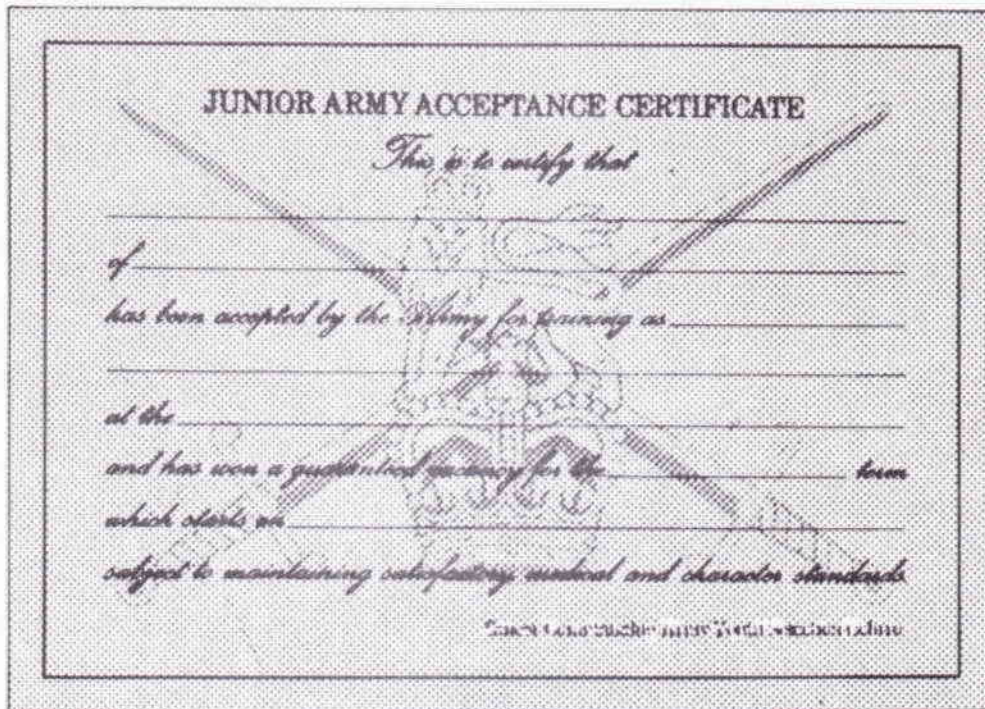 JUNIOR ARMY ACCEPTANCE CERTIFICATE
This is to certify that
of
has been accepted by the Army for training as
at the
and has won a guaranteed vacancy for the term
which starts on
subject to maintaining satisfactory medical and character standards
Army Youth